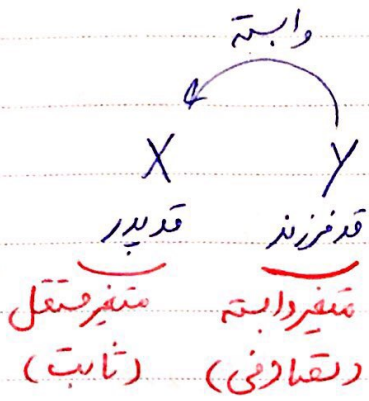 وابسته
X Y
قد پدر قد فرزند
متغیر مستقل متغیر وابسته
(ثابت) (تصادفی)